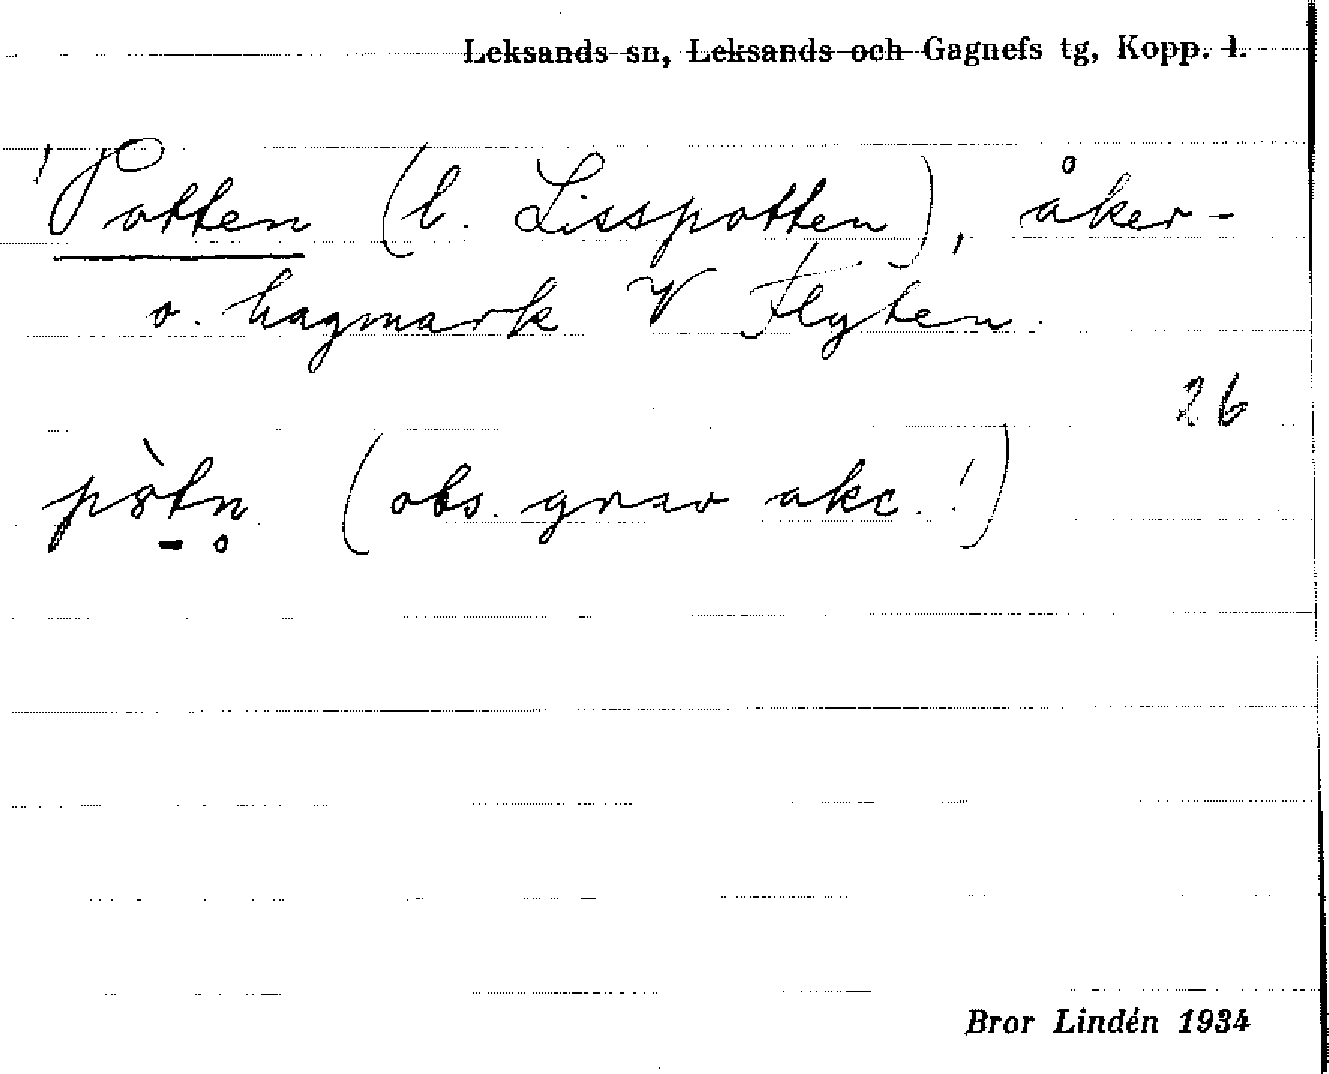 Leksands sn, Leksands och Gagnefs tg, Kopp. l.
'Potten (l. Lisspotten), åker-
o. hagmark V Flyten.
26
(obs. grav akc.!)
Bror Lindén 1934